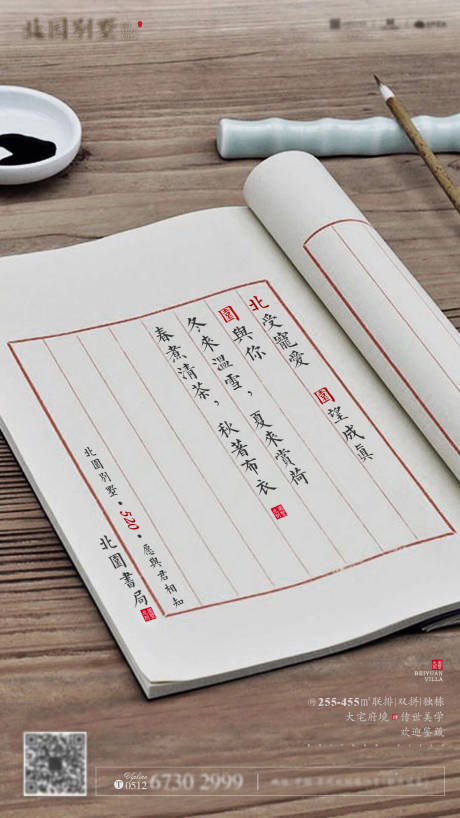 北园别墅
北受寵愛 園望成真
園與你
冬來溫雪，夏來賞荷
春煮清茶，秋著布衣
北園別墅·520·愿與君相知
北園書局
BEIYUAN
VILLA
255-455㎡联排|双拼|独栋
大宅府境 传世美学
欢迎鉴藏
0512 6730 2999